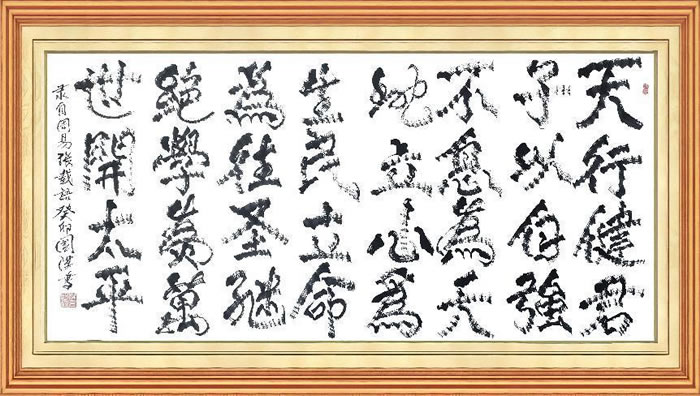 天行健君
子以自強
不息為天
地立心為
生民立命
為往圣継
絕學為萬
世開太平
录自周易张载語癸卯國洪書